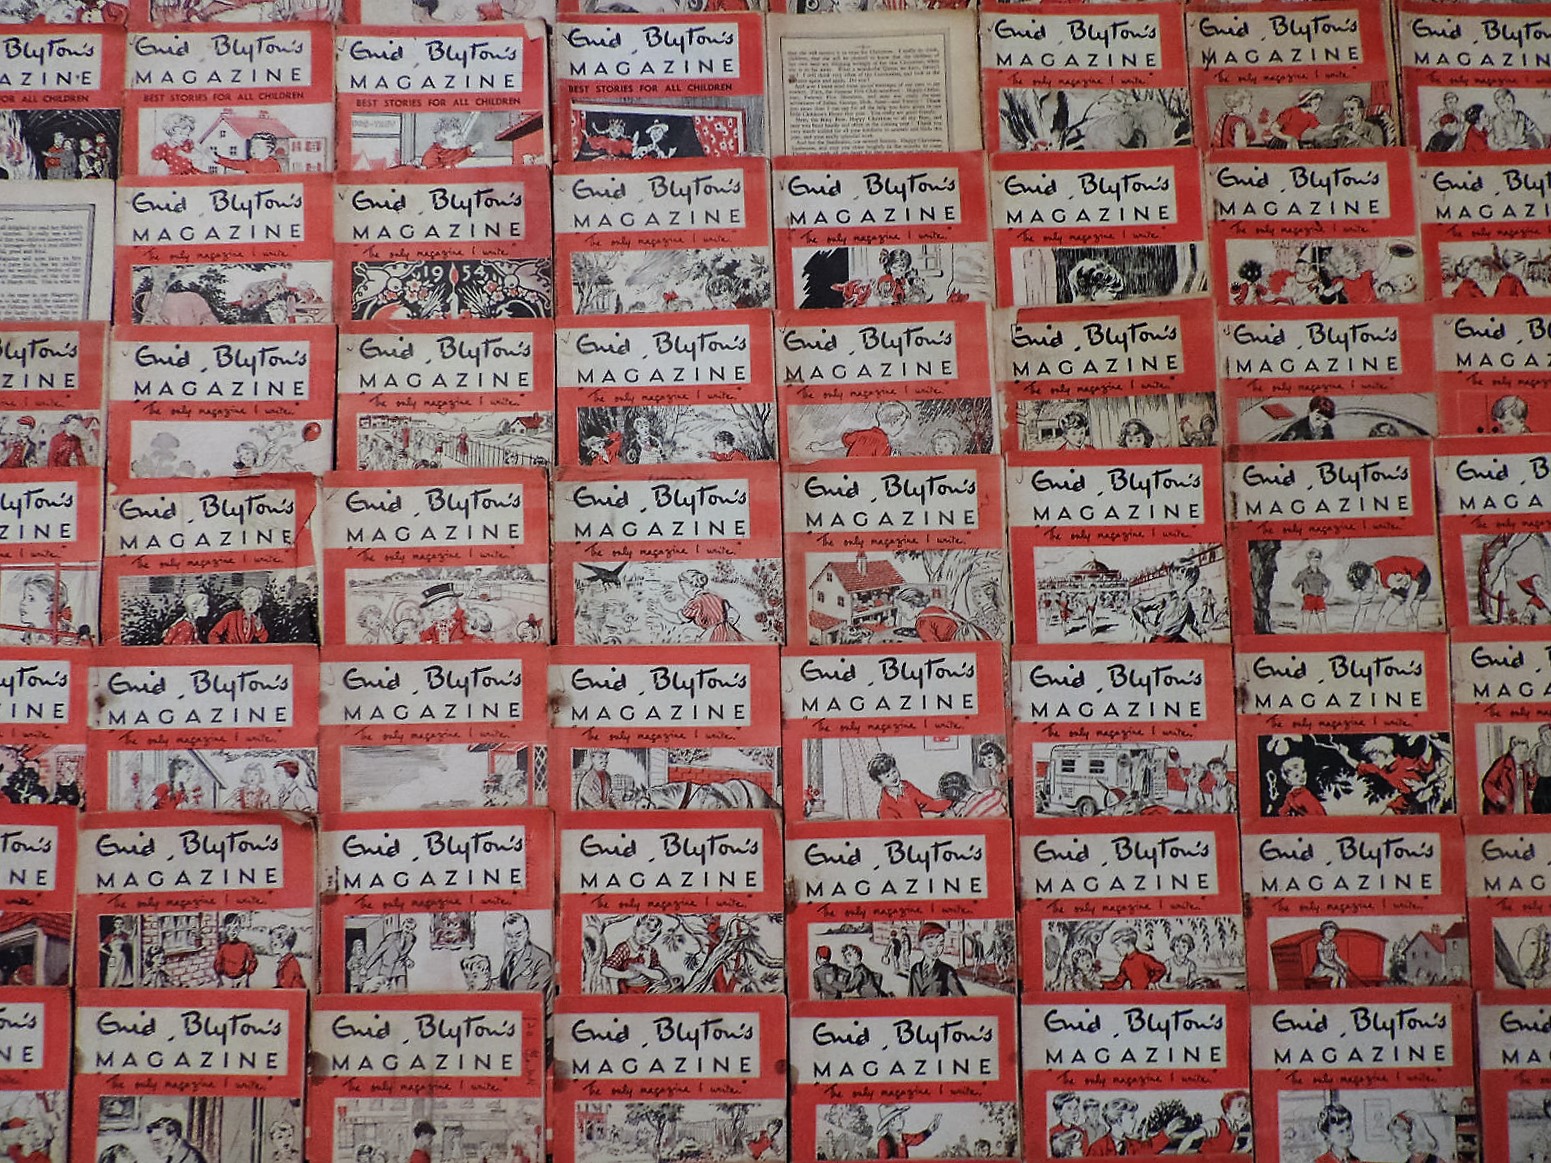 Blyton's
AZINE
FOR ALL CHILDREN
Enid Blyton's
MAGAZINE
BEST STORIES FOR ALL CHILDREN
Enid Blyton's
MAGAZINE
BEST STORIES FOR ALL CHILDREN
Enid Blyton's
MAGAZINE
BEST STORIES FOR ALL CHILDREN
Enid Blyton's
MAGAZINE
"The only magazine I write."
Enid Blyton's
MAGAZINE
"The only magazine I write."
Enid Blyt
MAGAZIN
"The only magazine I
Enid Blyton's
MAGAZINE
"The only magazine I write."
Enid Blyton's
MAGAZINE
"The only magazine I write."
1954
Enid Blyton's
MAGAZINE
"The only magazine I write."
Enid Blyton's
MAGAZINE
"The only magazine I write."
Enid Blyton's
MAGAZINE
"The only magazine I write."
Enid Blyton's
MAGAZINE
"The only magazine I write."
Enid Blyt
MAGAZI
"The only magazine I
lyton's
ZINE
I write."
Enid Blyton's
MAGAZINE
"The only magazine I write."
Enid Blyton's
MAGAZINE
"The only magazine I write."
Enid Blyton's
MAGAZINE
"The only magazine I write."
Enid Blyton's
MAGAZINE
"The only magazine I write."
Enid Blyton's
MAGAZINE
"The only magazine I write."
Enid Blyton's
MAGAZINE
"The only magazine I write."
Enid Bly
MAGAZ
"The only magazine
lyton's
ZINE
I write."
Enid Blyton's
MAGAZINE
"The only magazine I write."
Enid Blyton's
MAGAZINE
"The only magazine I write."
Enid Blyton's
MAGAZINE
"The only magazine I write."
Enid Blyton's
MAGAZINE
"The only magazine I write."
Enid Blyton's
MAGAZINE
"The only magazine I write."
Enid Blyton's
MAGAZINE
"The only magazine I write."
Enid Bl
MAGA
"The only magazine
yton's
INE
I write."
Enid Blyton's
MAGAZINE
"The only magazine I write."
Enid Blyton's
MAGAZINE
"The only magazine I write."
Enid Blyton's
MAGAZINE
"The only magazine I write."
Enid Blyton's
MAGAZINE
"The only magazine I write."
Enid Blyton's
MAGAZINE
"The only magazine I write."
Enid Blyton's
MAGAZINE
"The only magazine I write."
Enid B
MAGA
"The only magaz
ton's
NE
write."
Enid Blyton's
MAGAZINE
"The only magazine I write."
Enid Blyton's
MAGAZINE
"The only magazine I write."
Enid Blyton's
MAGAZINE
"The only magazine I write."
Enid Blyton's
MAGAZINE
"The only magazine I write."
Enid Blyton's
MAGAZINE
"The only magazine I write."
Enid Blyton's
MAGAZINE
"The only magazine I write."
Enid
MAG
"The only mag
on's
NE
"
Enid Blyton's
MAGAZINE
"The only magazine I write."
Enid Blyton's
MAGAZINE
"The only magazine I write."
Enid Blyton's
MAGAZINE
"The only magazine I write."
Enid Blyton's
MAGAZINE
"The only magazine I write."
Enid Blyton's
MAGAZINE
"The only magazine I write."
Enid Blyton's
MAGAZINE
"The only magazine I write."
Enid
MA
"The only